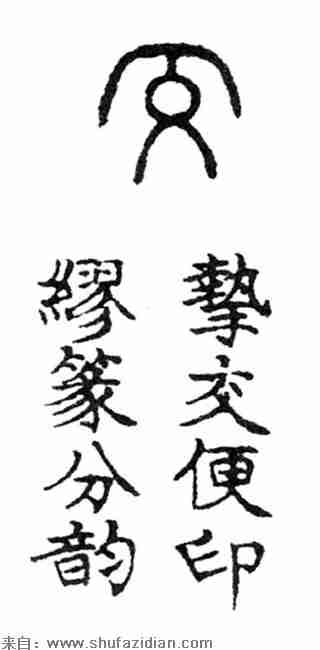 交
摯交便印
繆篆分韵
来自：www.shufazidian.com